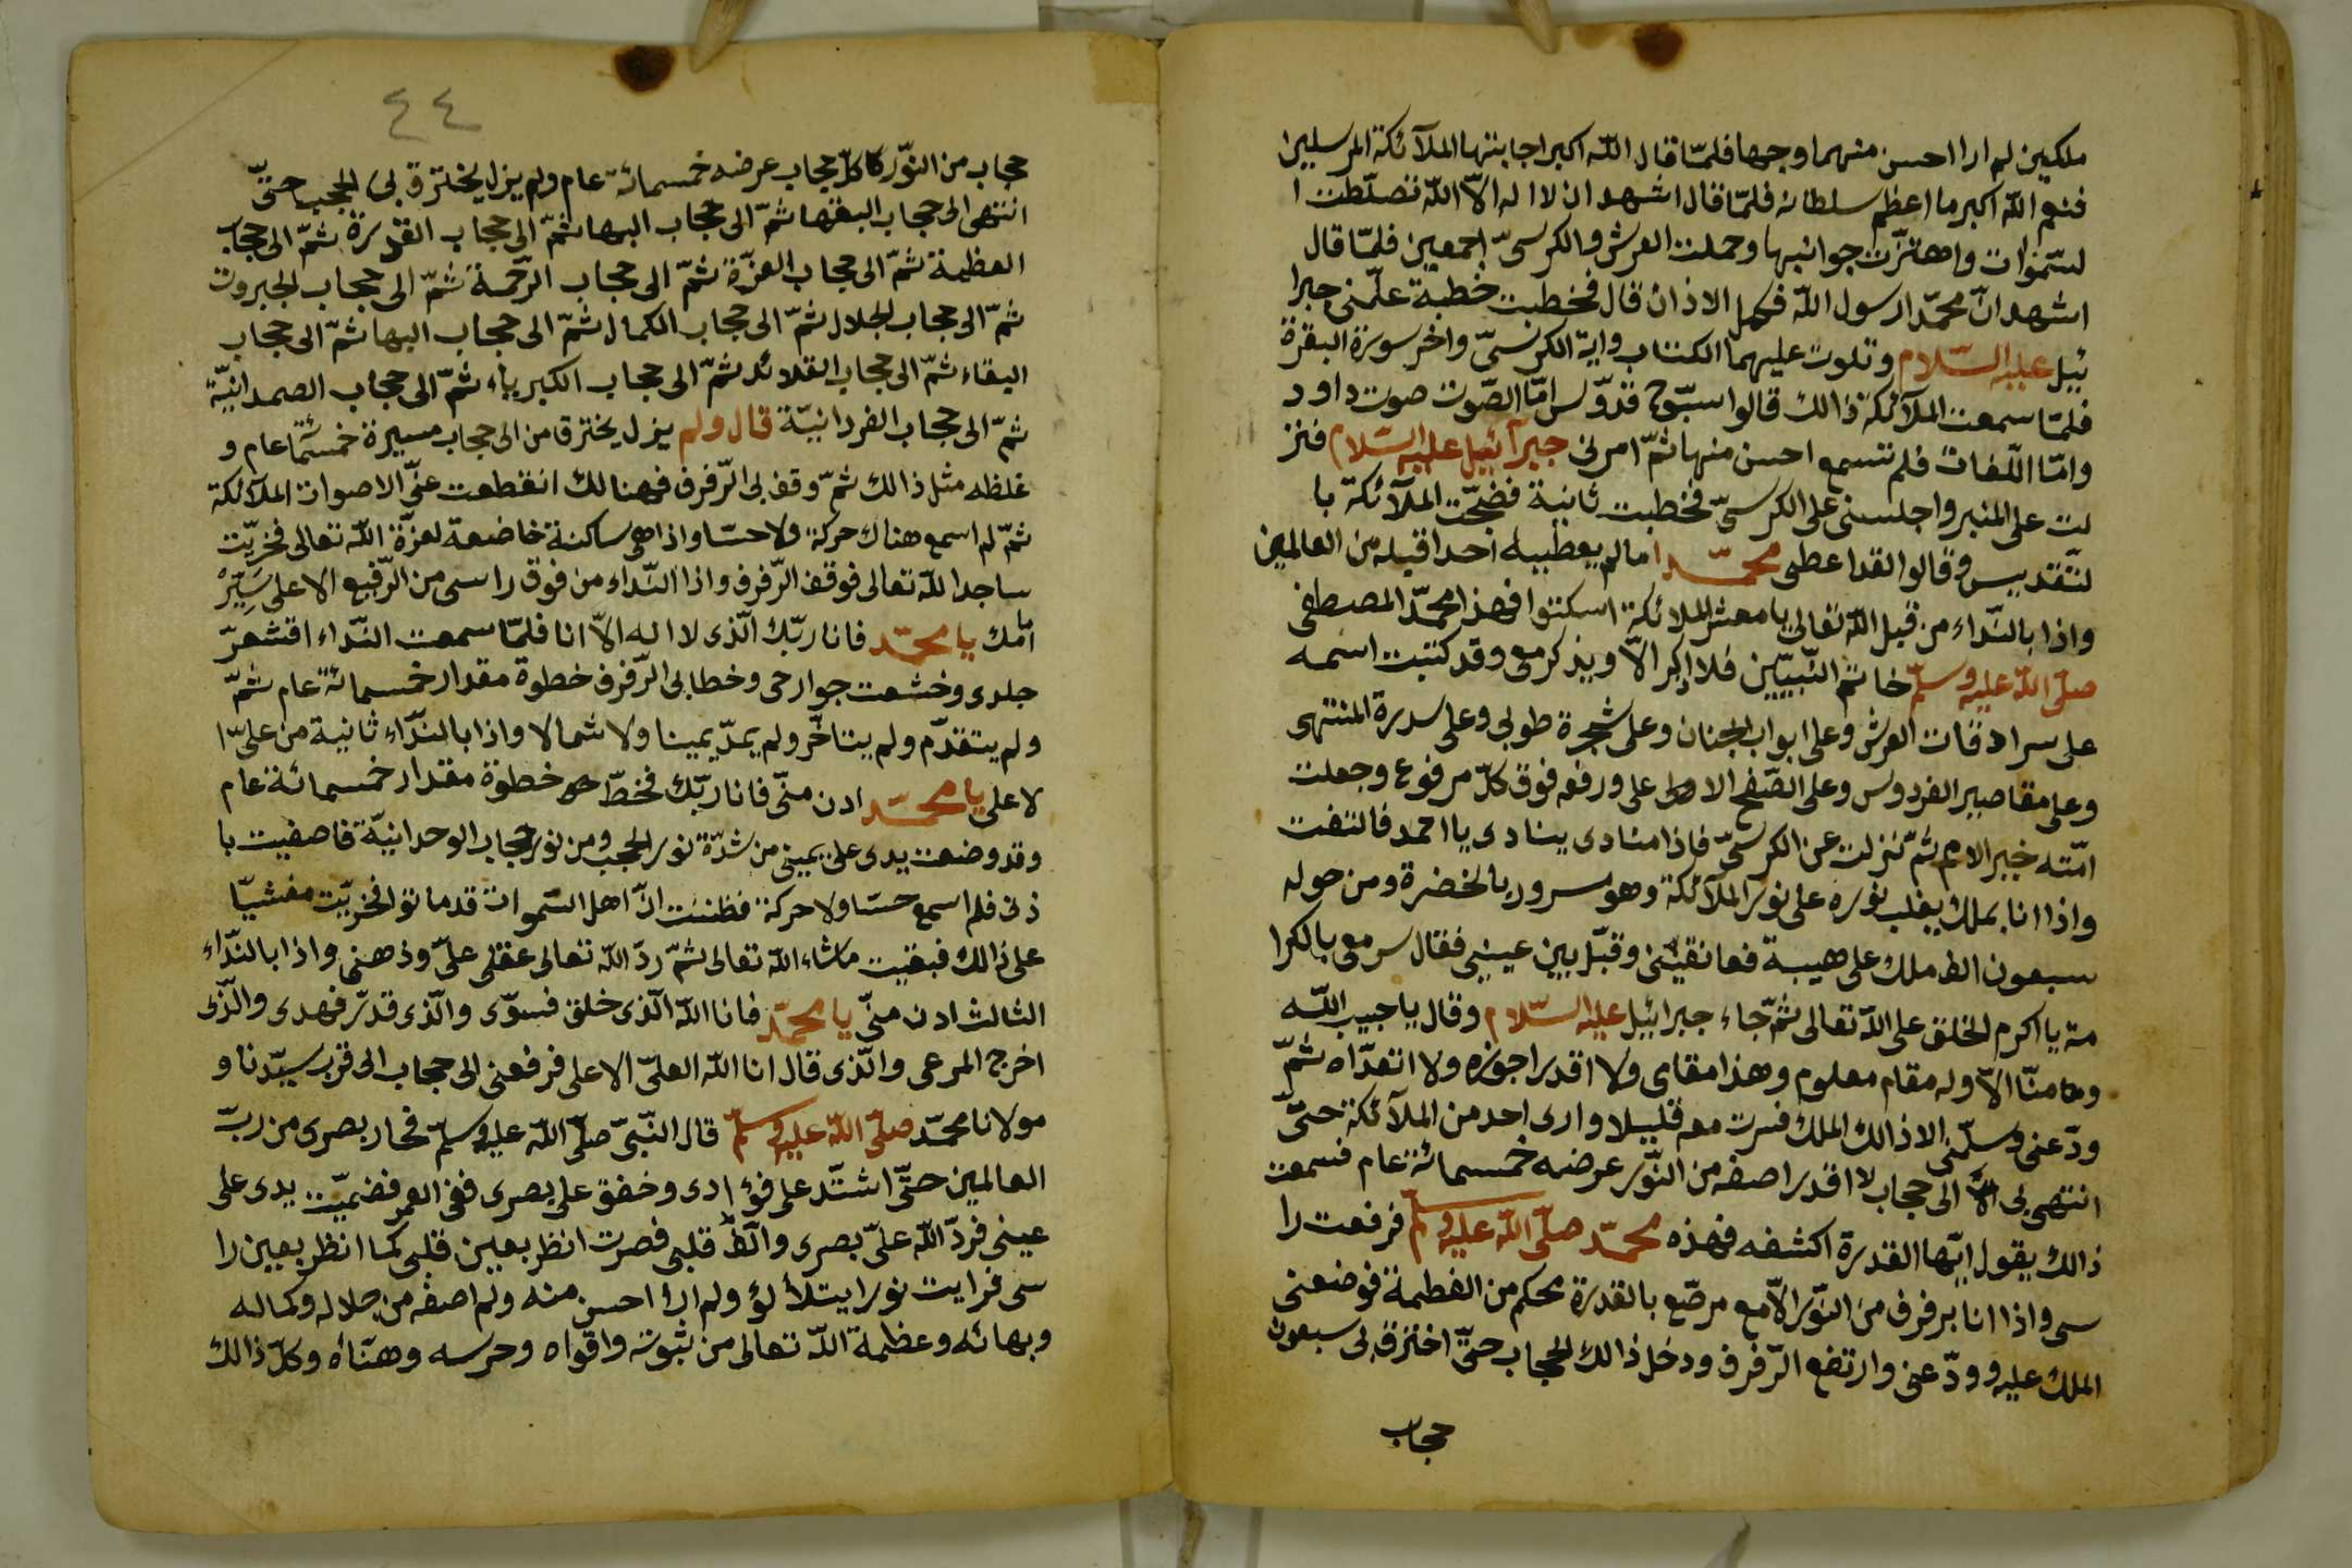 ملكين لم ارا احسن منهما وجها فلمّا قال اللّه اكبر اجابتها الملآئكة المرسلين
فنعم اللّه اكبر ما اعظم سلطانه فلمّا قال اشهد ان لا اله الّا اللّه تصلّطت ا
لسّموات واهتزّت جوانبها وحملت العرش والكرسىّ اجمعين فلمّا قال
اشهد انّ محمّدا رسول اللّه فكمل الاذان قال فخطبت خطبة علّمنى جبرا
ئيل عليه السّلام وتلوت عليهما الكتاب واية الكرسىّ واخر سورة البقرة
فلمّا سمعت الملآئكة ذالك قالوا سبّوح قدّوس امّا الصّوت صوت داود
وامّا اللّغات فلم نسمع احسن منها ثمّ امرنى جبرآئيل عليه السّلام فنز
لت على المنبر واجلسنى على الكرسىّ فخطبت ثانية فضجّت الملآئكة با
لتّقديس وقالوا لقد اعطى محمّد ما لم يعطيه احدا قبله من العالمين
واذا بالنّداء من قبل اللّه تعالى يا معشر الملائكة اسكتوا فهذا محمّد المصطفى
صلّى اللّه عليه وسلّم خاتم النّبييّن فلا اذكر الّا ويذكر معى وقد كتبت اسمه
على سرادقات العرش وعلى ابواب الجنان وعلى شجرة طوبى وعلى سدرة المنتهى
وعلى مقاصير الفردوس وعلى الصّفح الاولى على ورفعه فوق كلّ مرفوع وجعلت
امّته خير الامم ثمّ نزلت عن الكرسىّ فاذا منادى ينادى يا احمد فالتفت
واذا انا بملك يغلب نوره على نور الملآئكة وهو مسرور بالخضرة ومن حوله
سبعون الف ملك على هيبة فعانقينى وقبّل بين عينينى فقال سر معى بالكرا
مة يا اكرم الخلق على اللّه تعالى ثمّ جاء جبرائيل عليه السّلام وقال يا حبيب اللّه
وما منّا الّا وله مقام معلوم وهذا مقاى ولا اقدر اجوزه ولا اتعدّاه ثمّ
ودّعنى وسلّمنى الا ذالك الملك فسرت معه قليلا وارى احد من الملآئكة حتّى
انتهى بى الى حجاب لا اقدر اصفه من النّور عرضه خمسمائة عام فسمعت
ذالك يقول ايّها القدرة اكشفه فهذه محمّد صلّى اللّه عليه وسلّم فرفعت را
سى واذا انا برفرف من النّور الآمع مرصّع بالقدرة محكم من الفطمة فوضعنى
الملك عليه وودّعنى وارتفع الرّفرف ودخل ذالك الحجاب حتّى اخترق بى سبعون
حجاب
٤٤
حجاب من النّور كا كلّ حجاب عرضه خمسمائة عام ولم يزل يخترق بى الحجب حتّى
انتهى الى حجاب البقها ثمّ الى حجاب البها ثمّ الى حجاب القدرة ثمّ الى حجاب
العظمة ثمّ الى حجاب العزّة ثمّ الى حجاب الرّحمة ثمّ الى حجاب الجبروت
ثمّ الى حجاب الجلال ثمّ الى حجاب الكمال ثمّ الى حجاب البها ثمّ الى حجاب
البقاء ثمّ الى حجاب القلائد ثمّ الى حجاب الكبرياء ثمّ الى حجاب الصمدانيّة
ثمّ الى حجاب الفردانيّة قال ولم يزل يخترق من الى حجاب مسيرة خمسمّائة عام و
غلظه مثل ذالك ثمّ وقف بى الرّفرف فهنالك انقطعت عنّى الاصوات الملآئكة
ثمّ لم اسمع هناك حركة ولا حسّا واذا هى ساكنة خاضعة لعزّة اللّه تعالى فخريّت
ساجدا للّه تعالى فوقف الرّفرف واذا النّداء من فوق راسى من الرّفيع الاعلى سَيِّرْه
امامك يا محمّد فانا ربّك الّذى لا اله الّا انا فلمّا سمعت النّداء اقشعرّ
جلدى وخشعت جوارحى وخطا بى الرّفرف خطوة مقدار خمسمائة عام ثمّ
ولم يتقدّم ولم يتاخّر ولم يمدّ يمينا ولا شمالا واذا بالنّداء ثانية من علىّ ا
لاعلى يا محمّد ادن منّى فانا ربّك فخطّ خطوة مقدار خمسمائة عام
وقد وضعت يدى على يمينى من شدّة نور الحجب ومن نور حجاب الوحدانيّة فاصفيت با
ذنى فلم اسمع حسّا ولا حركة فظننت انّ اهل السّموات قد ماتوا فخريّت مغشيّا
على ذالك فبقيت ماشاء اللّه تعالى ثمّ ردّ اللّه تعالى عقلى علىّ وذهنى واذا بالنّداء
الثالث ادن منّى يا محمّد فانا اللّه الّذى خلق فسوّى والّذى قدّر فهدى والّذى
اخرج المرعى والّذى قال انا اللّه العلىّ الاعلى فرفعنى الى حجاب الى قرب سيّدنا و
مولانا محمّد صلّى اللّه عليه وسلّم قال النّبىّ صلّى اللّه عليه وسلّم فحار بصرى من ربّ
العالمين حتّى اشتّد على فؤادى وخفق على بصرى ففى العمر فضميّت يدى على
عينى فردّ اللّه علىّ بصرى والّف قلبى فصرت انظر بعين قلبى كما انظر بعين را
سى فرايت نورا يتلألؤ ولم ارا احسن منه ولم اصفه من جلاله وكماله
وبهائه وعظمة اللّه تعالى من ثبوته واقواه وحرسه وهنّأه وكلّ ذالك